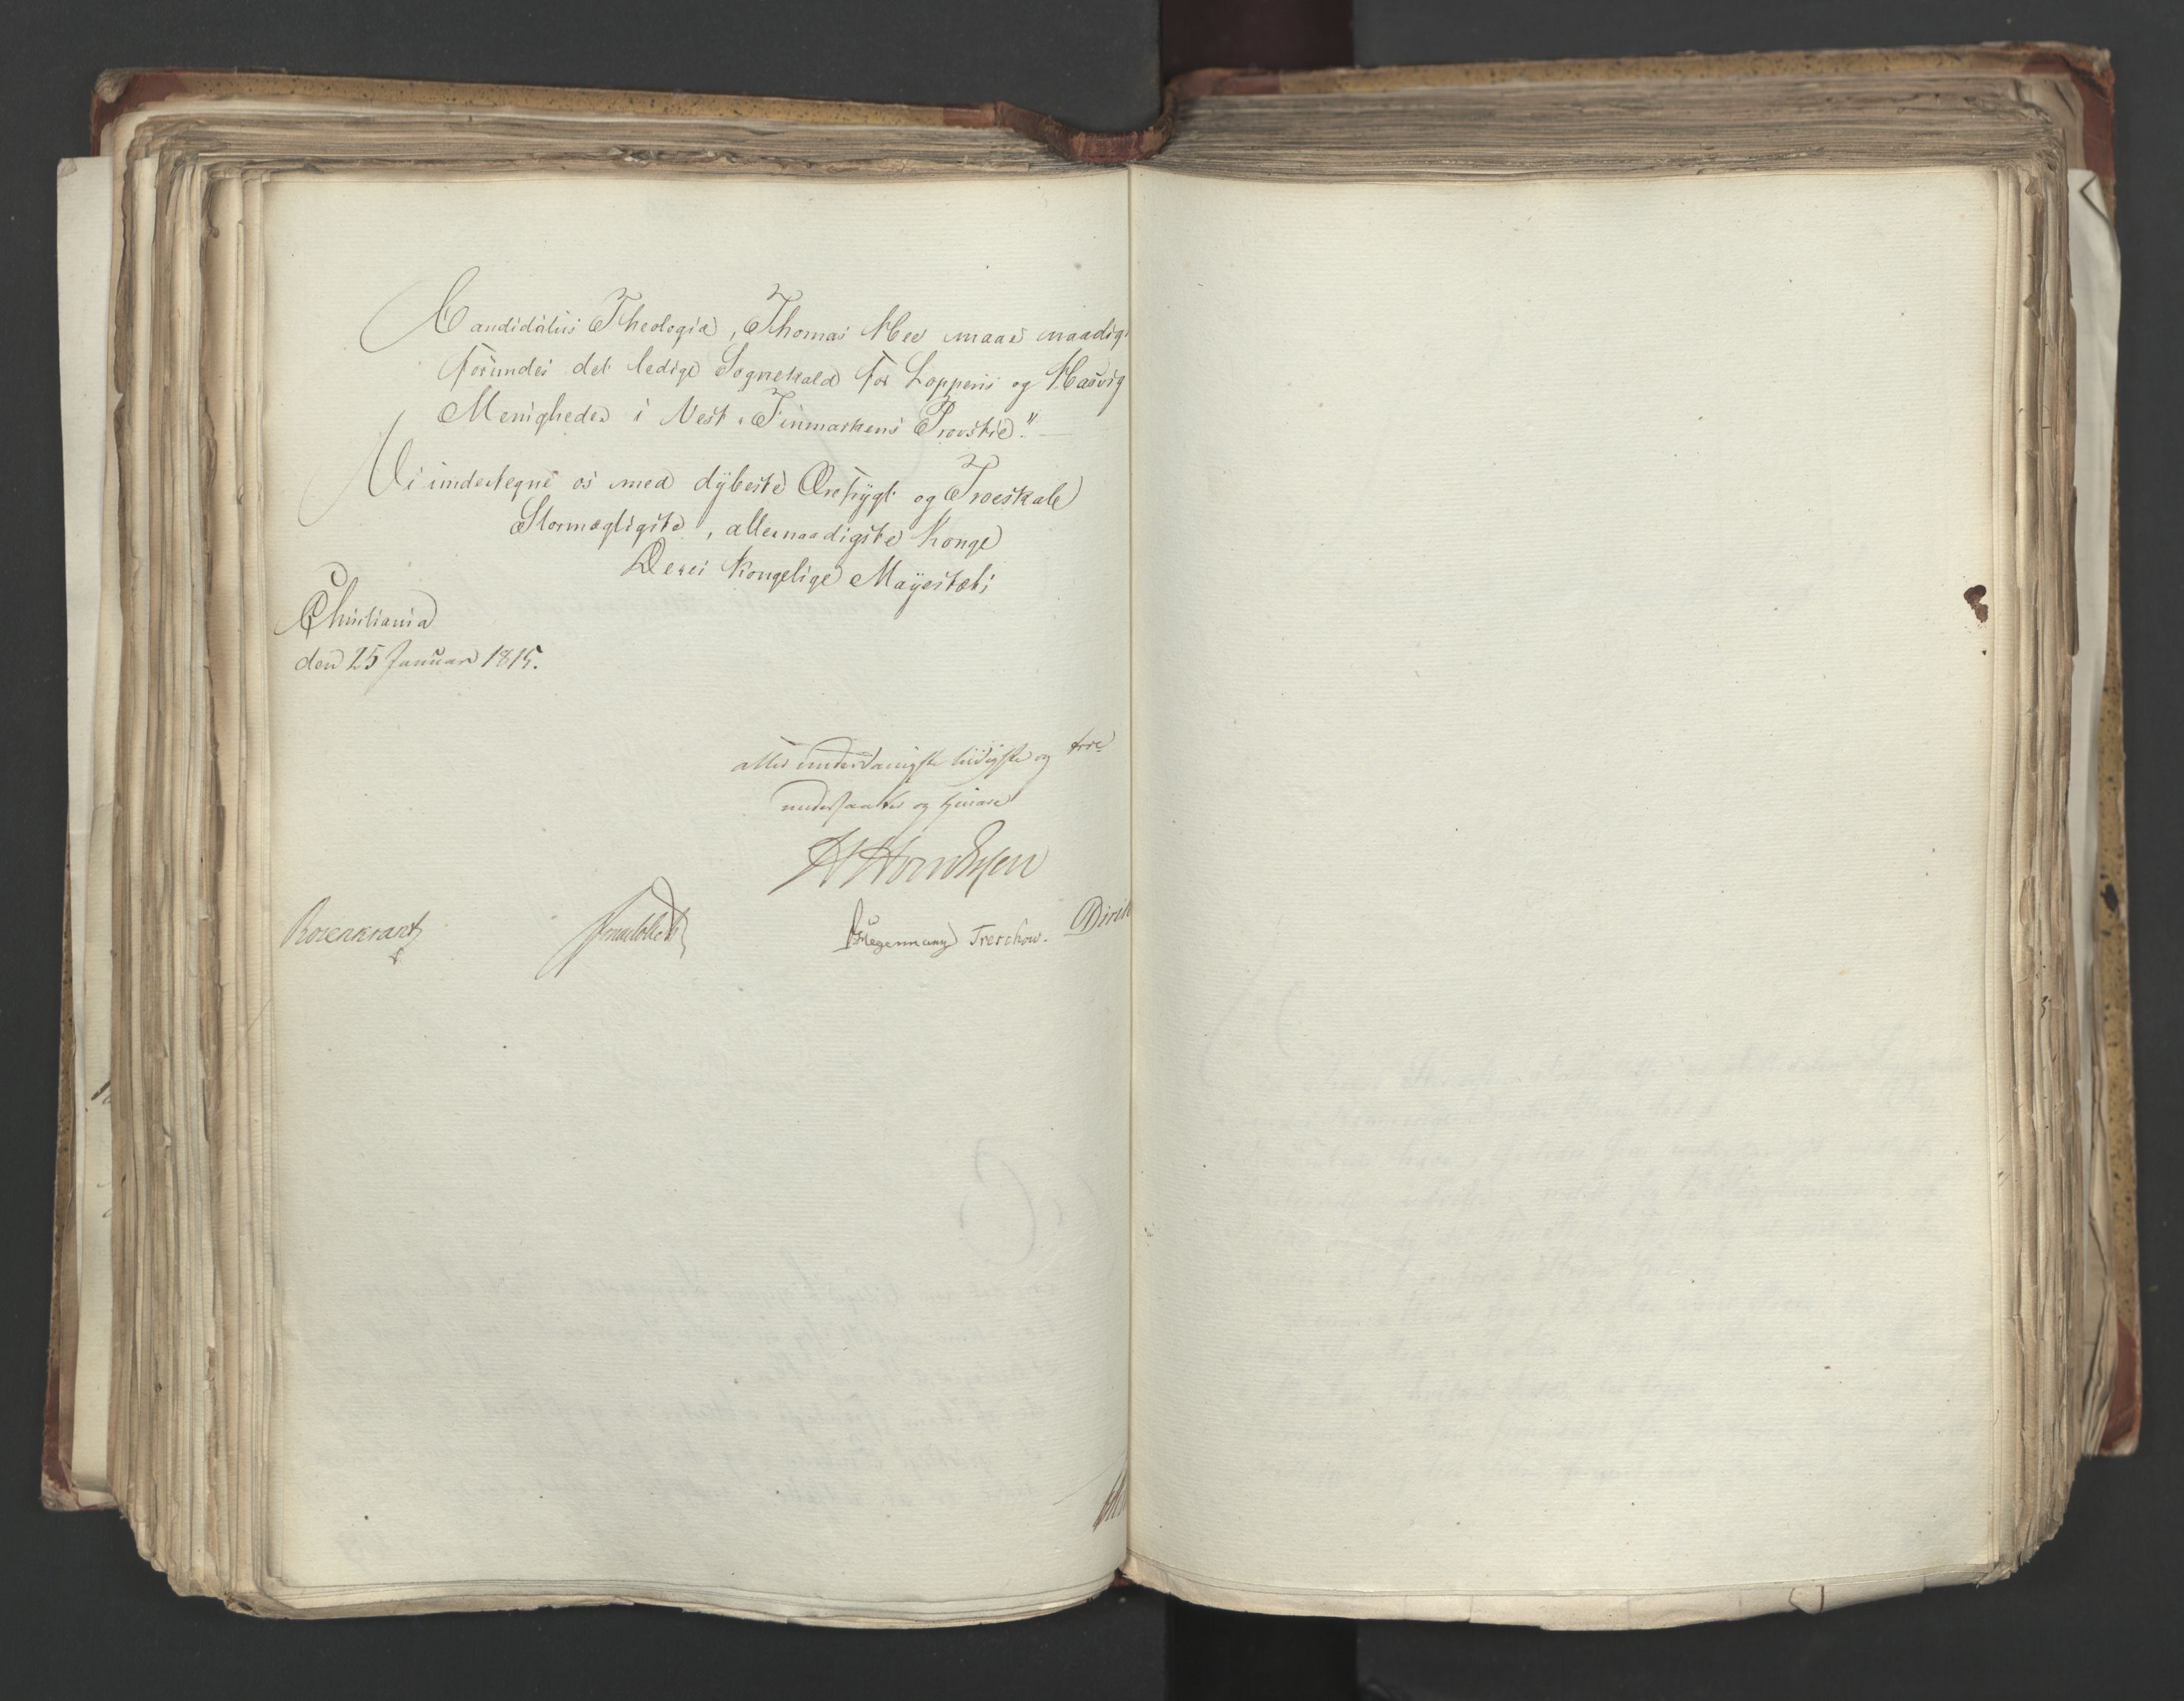 Candidatus Theologiæ, Thomas Hee maae naadigst
forundes det ledige Sognekald for Loppens og Hasvig
Menigheder i Vest-Finmarkens Provstie."
Vi undertegne os med dybeste Ærefrygt og Troeskab
Stormægtigste, allernaadigste Konge
Deres Kongelige Mayestæts
Christiania
den 25 Januar 1815.
aller underdanigste lydigste og troe
undersaatter og tjenere
Rosenkrantz
Hegermann Treschow. Dirik